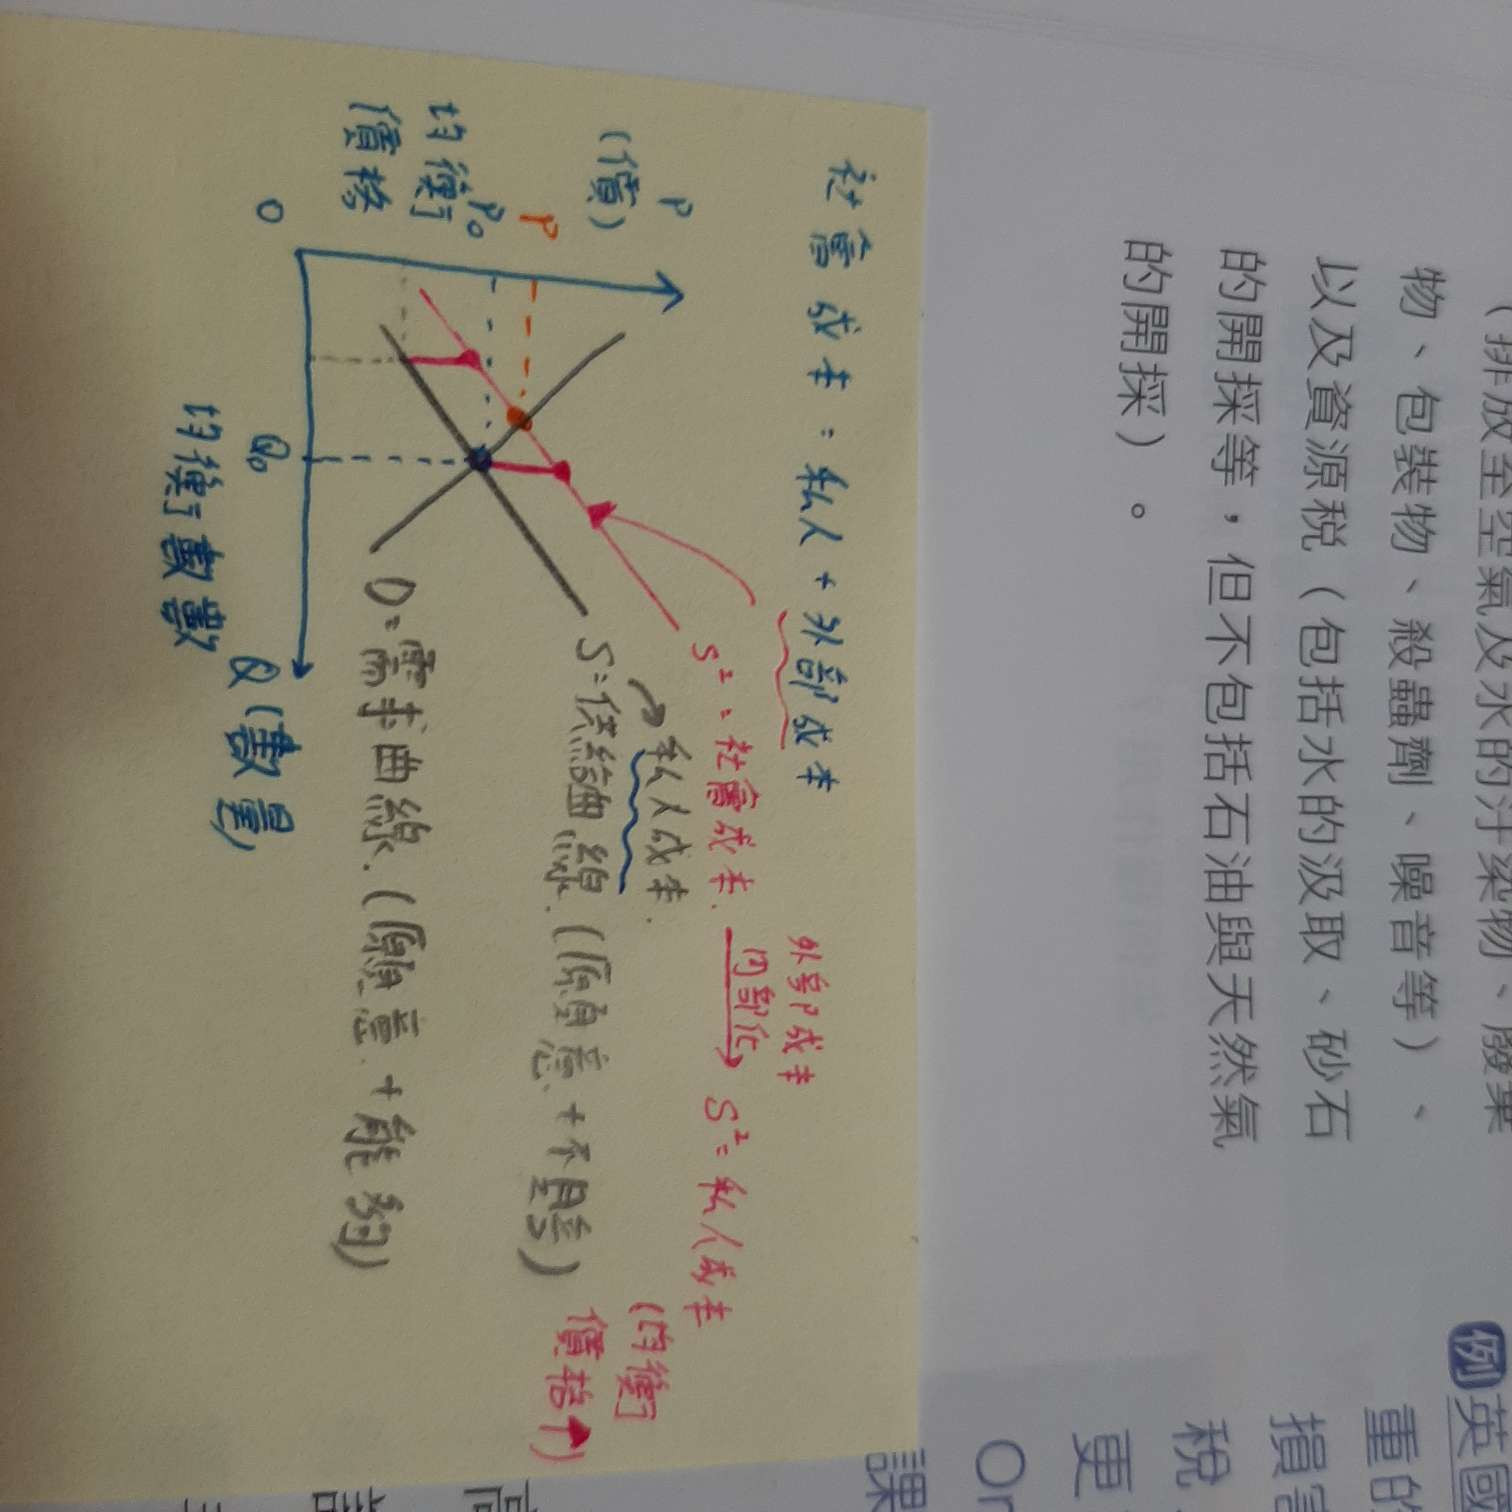 （排放至空氣及水的汙染物、廢棄
物、包裝物、殺蟲劑、噪音等）、
以及資源稅（包括水的汲取、砂石
的開採等，但不包括石油與天然氣
的開採）。
例 英國
重
稅
更
課
社會成本 = 私人 + 外部成本
外部成本
內部化
S²=社會成本.
S²=私人成本
(均衡
價格↑)
私人成本.
S=供給曲線.(願意+不虧)
D=需求曲線.(願意+能夠)
P
(價)
P
P₀
均衡
價格
O
Q₀
均衡數數
Q(數量)